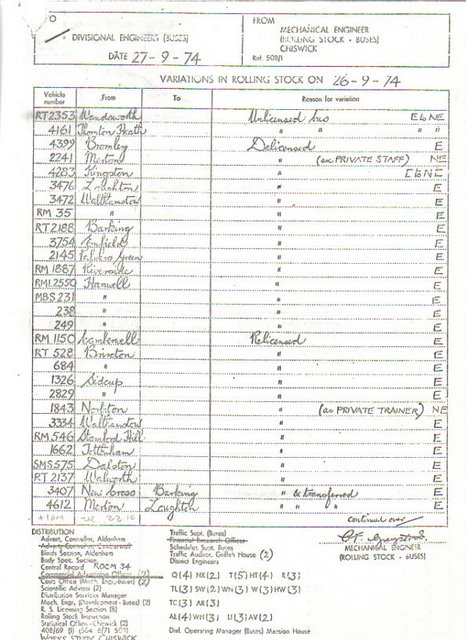 DIVISIONAL ENGINEERS (BUSES)
DATE 27-9-74
FROM
MECHANICAL ENGINEER
(ROLLING STOCK - BUSES)
CHISWICK
Ref. 508/1
VARIATIONS IN ROLLING STOCK ON 26-9-74
Vehicle number From To Reason for variation
RT2353 Wandsworth Unlicensed bus E to NE
4161 Thornton Heath " " " "
4399 Bromley Delicensed E
2241 Merton " (ex PRIVATE STAFF) NE
4283 Kingston " E to NE
3476 Edgware " E
3472 Walthamstow " E
RM 35 " " E
RT2188 Barking " E
3754 Enfield " E
2145 Palmers Green " E
RM 1887 Riverside " E
RML2550 Hanwell " E
MBS 231 " " E
238 " " E
249 " " E
RM 1150 Camberwell Relicensed E
RT 528 Brixton " E
684 " " E
1326 Sidcup " E
2829 " " E
1843 Norbiton " (as PRIVATE TRAINER) NE
3334 Walthamstow " E
RM 546 Stamford Hill " E
1662 Tottenham " E
SMS 575 Dalston " E
RT 2137 Walworth " E
3407 New Cross Barking " & transferred E
4612 Merton Loughton " " E
continued over
MECHANICAL ENGINEER
(ROLLING STOCK - BUSES)
DISTRIBUTION
Advert. Controller, Aldenham
Blinds Section, Aldenham
Body Spec. Section
Central Record ROOM 34
Commercial Advertising Officer (2)
Costs Office (Mech. Engr.-Buses) (2)
Scientific Advisor (2)
Distribution Services Manager
Mech. Engr. (Development - Buses) (2)
R. S. Licensing Section (8)
Rolling Stock Inspectors
Statistical Office - Chiswick (2)
WORKS STUDY CHISWICK
Traffic Supt. (Buses)
Financial Research Officer
Schedules Supt. Buses
Traffic Auditor, Griffith House (2)
District Engineers
Q(4) NX(2) T(5) HT(4) R(3)
TL(3) SW(2) WN(3) W(3) HW(3)
TC(3) AR(3)
AL(4) WH(3) U(3) AV(2)
Divl. Operating Manager (Buses) Mansion House